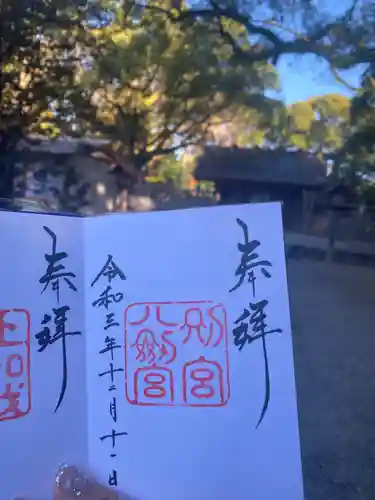 奉拝
別宮
八劔宮
令和三年十二月十一日
奉拝